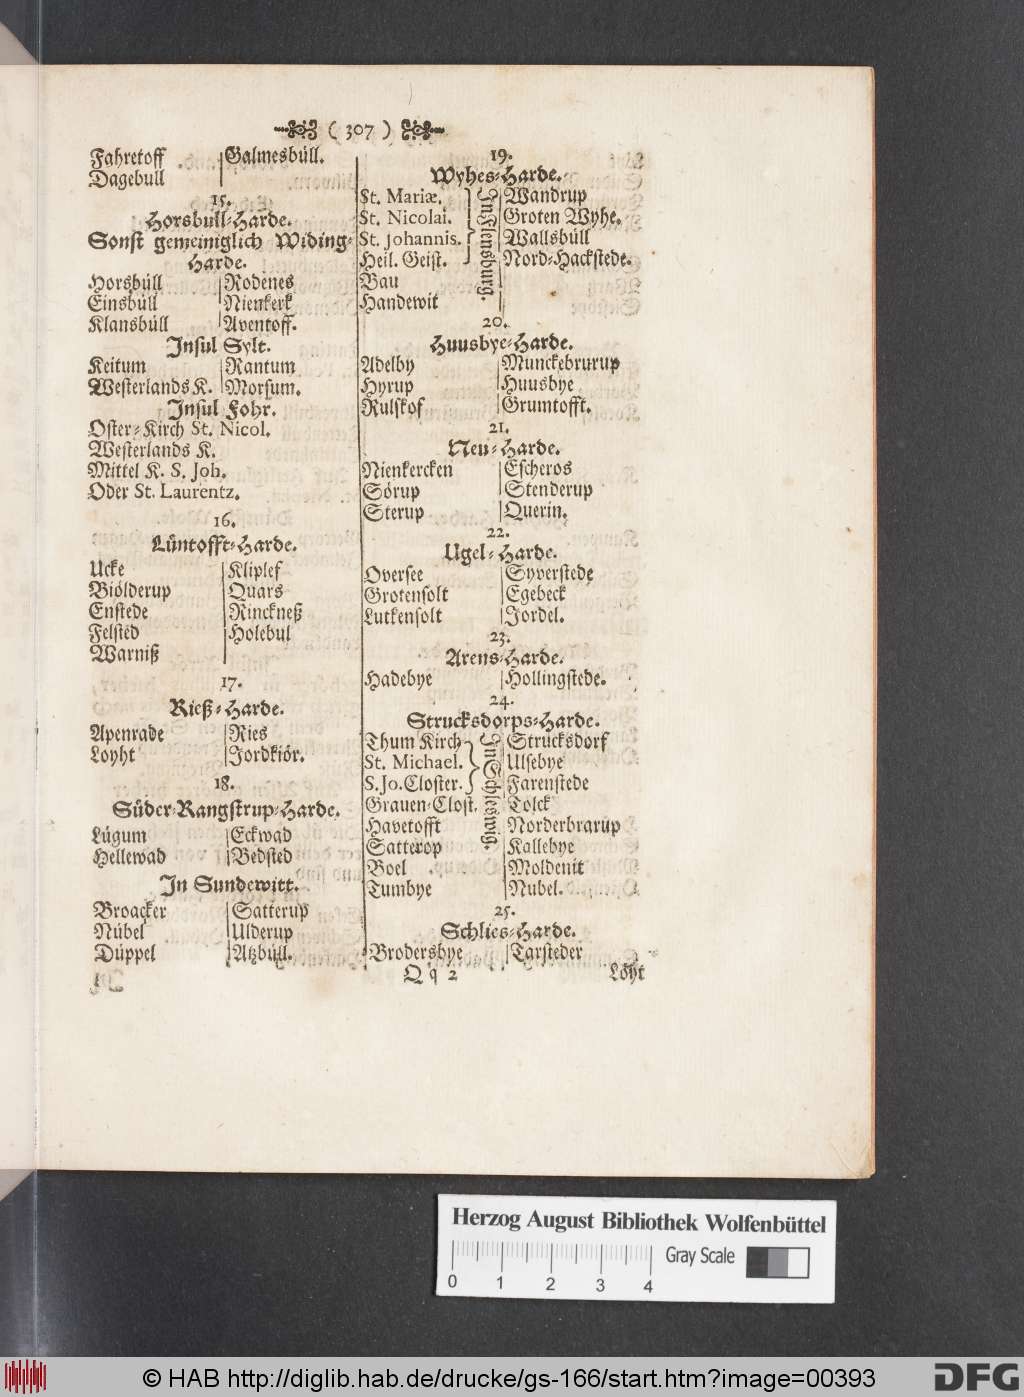 ( 307 )
Fahretoff Galmesbüll.
Dagebull
15.
Horsbull-Harde.
Sonst gemeiniglich Widing-
Harde.
Horsbüll Rodenes
Einsbüll Nienkerk
Klansbüll Aventoff.
Insul Sylt.
Keitum Rantum
Westerlands K. Morsum.
Insul Fohr.
Oster-Kirch St. Nicol.
Westerlands K.
Mittel K. S. Joh.
Oder St. Laurentz.
16.
Lüntofft-Harde.
Ucke Kliplef
Biölderup Quars
Enstede Rinckneß
Felsted Holebul
Warniß
17.
Rieß-Harde.
Apenrade Ries
Loyht Jordkiör.
18.
Süder-Rangstrup-Harde.
Lügum Eckwad
Hellewad Bedsted
In Sundewitt.
Broacker Satterup
Nübel Ulderup
Düppel Atzbüll.
19.
Wyhes-Harde.
St. Mariæ. Wandrup
St. Nicolai. Groten Wyhe.
St. Johannis. Wallsbüll
Heil. Geist. Nord-Hackstede.
In Flensburg.
Bau
Handewit
20.
Huusbye-Harde.
Adelby Munckebrurup
Hyrup Huusbye
Rulskof Grumtofft.
21.
Neu-Harde.
Nienkercken Escheros
Sörup Stenderup
Sterup Querin.
22.
Ugel-Harde.
Oversee Syverstede
Grotensolt Egebeck
Lutkensolt Jordel.
23.
Arens-Harde.
Hadebye Hollingstede.
24.
Strucksdorps-Harde.
Thum Kirch Strucksdorf
St. Michael. Ulsebye
S. Jo. Closter. Farenstede
In Schleswig.
Grauen-Clost. Tolck
Havetofft Norderbrarup
Satterop Kallebye
Boel Moldenit
Tumbye Nubel.
25.
Schlies-Harde.
Brodersbye Tarsteder
Q q 2 Löyt
Herzog August Bibliothek Wolfenbüttel
Gray Scale
0 1 2 3 4
© HAB http://diglib.hab.de/drucke/gs-166/start.htm?image=00393
DFG